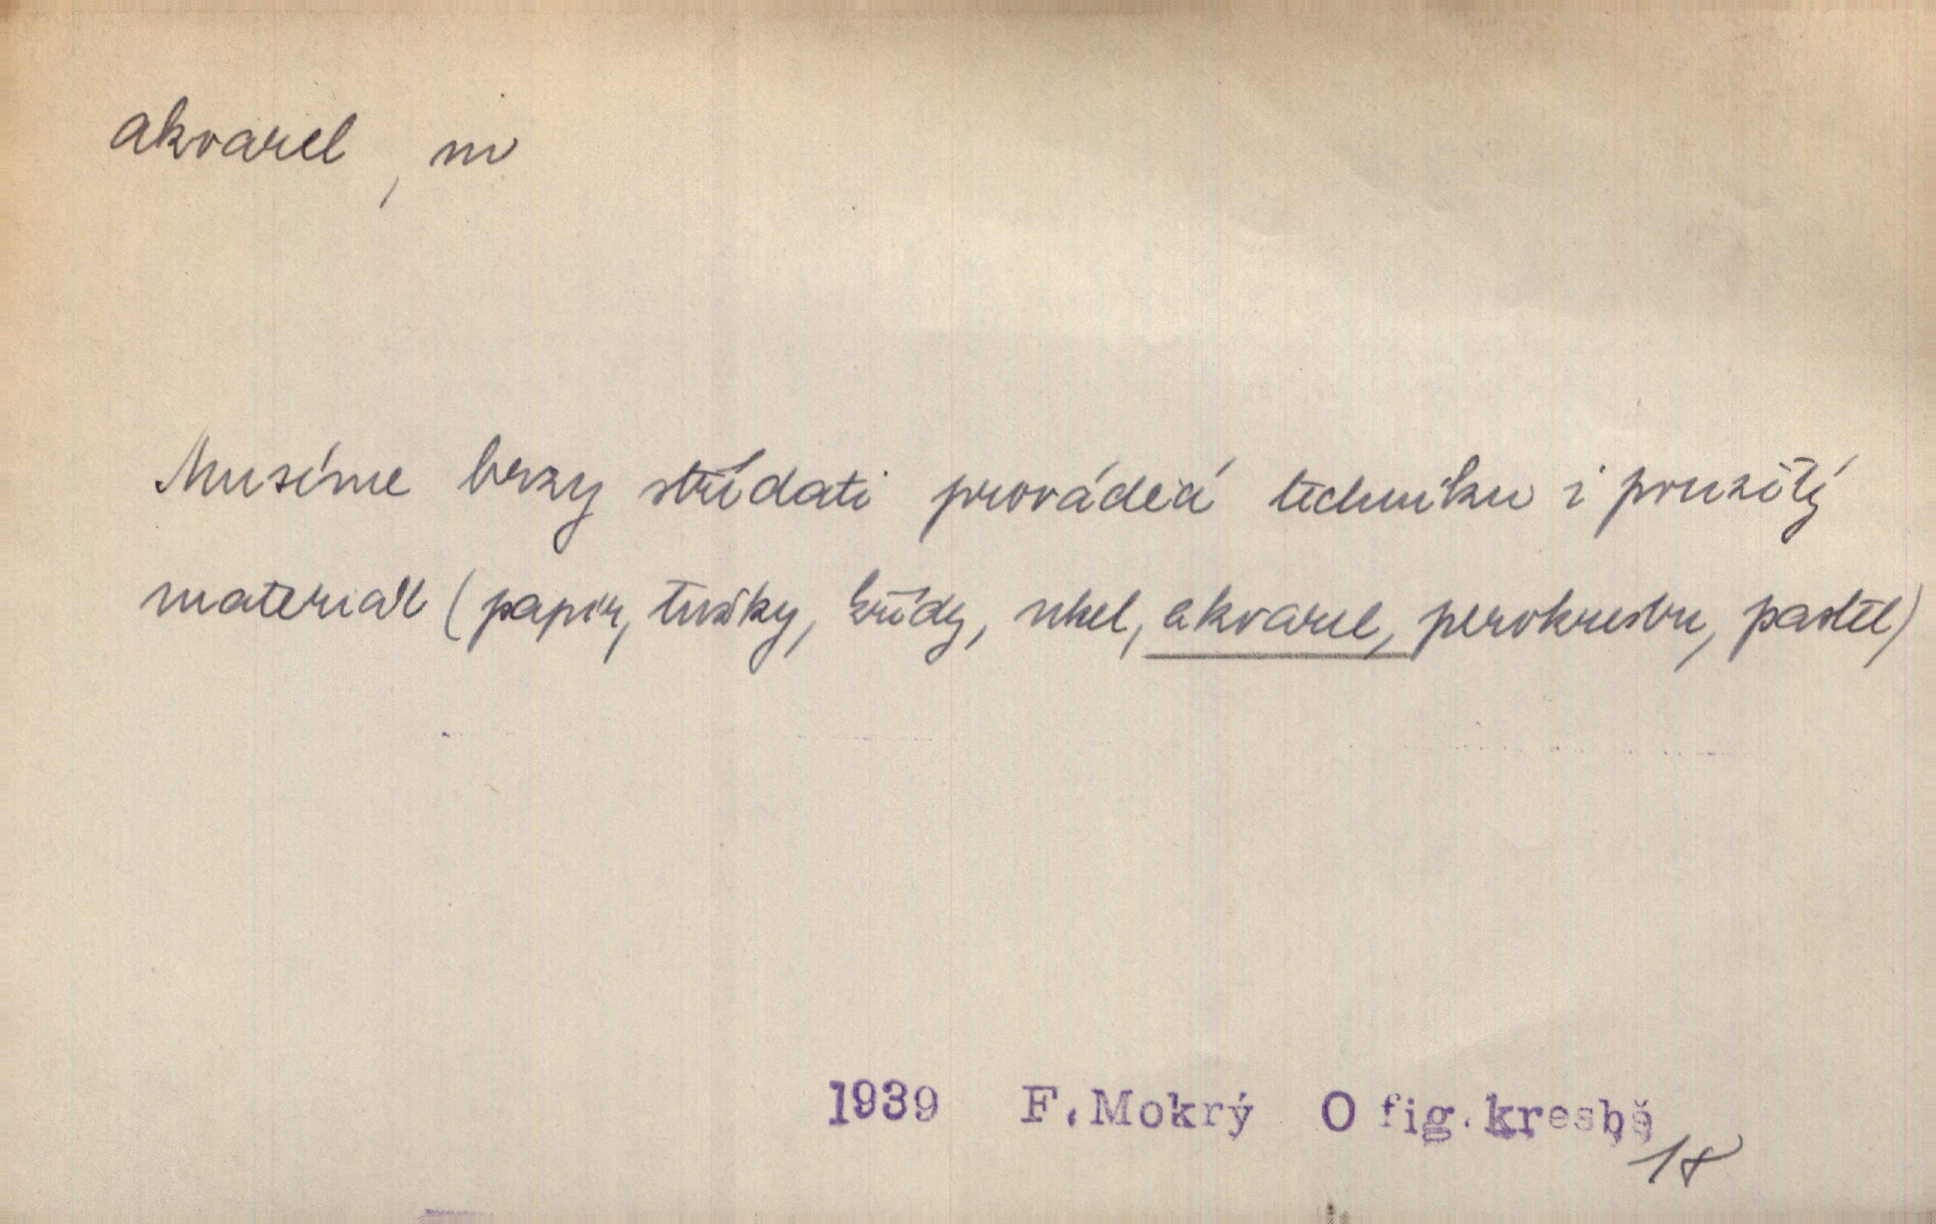 akvarel, m
Musíme brzy střídati prováděcí techniku i použitý
materiál (papír, tužky, křídy, uhel, akvarel, perokresbu, pastel)
1939 F. Mokrý O fig. kresbě
18